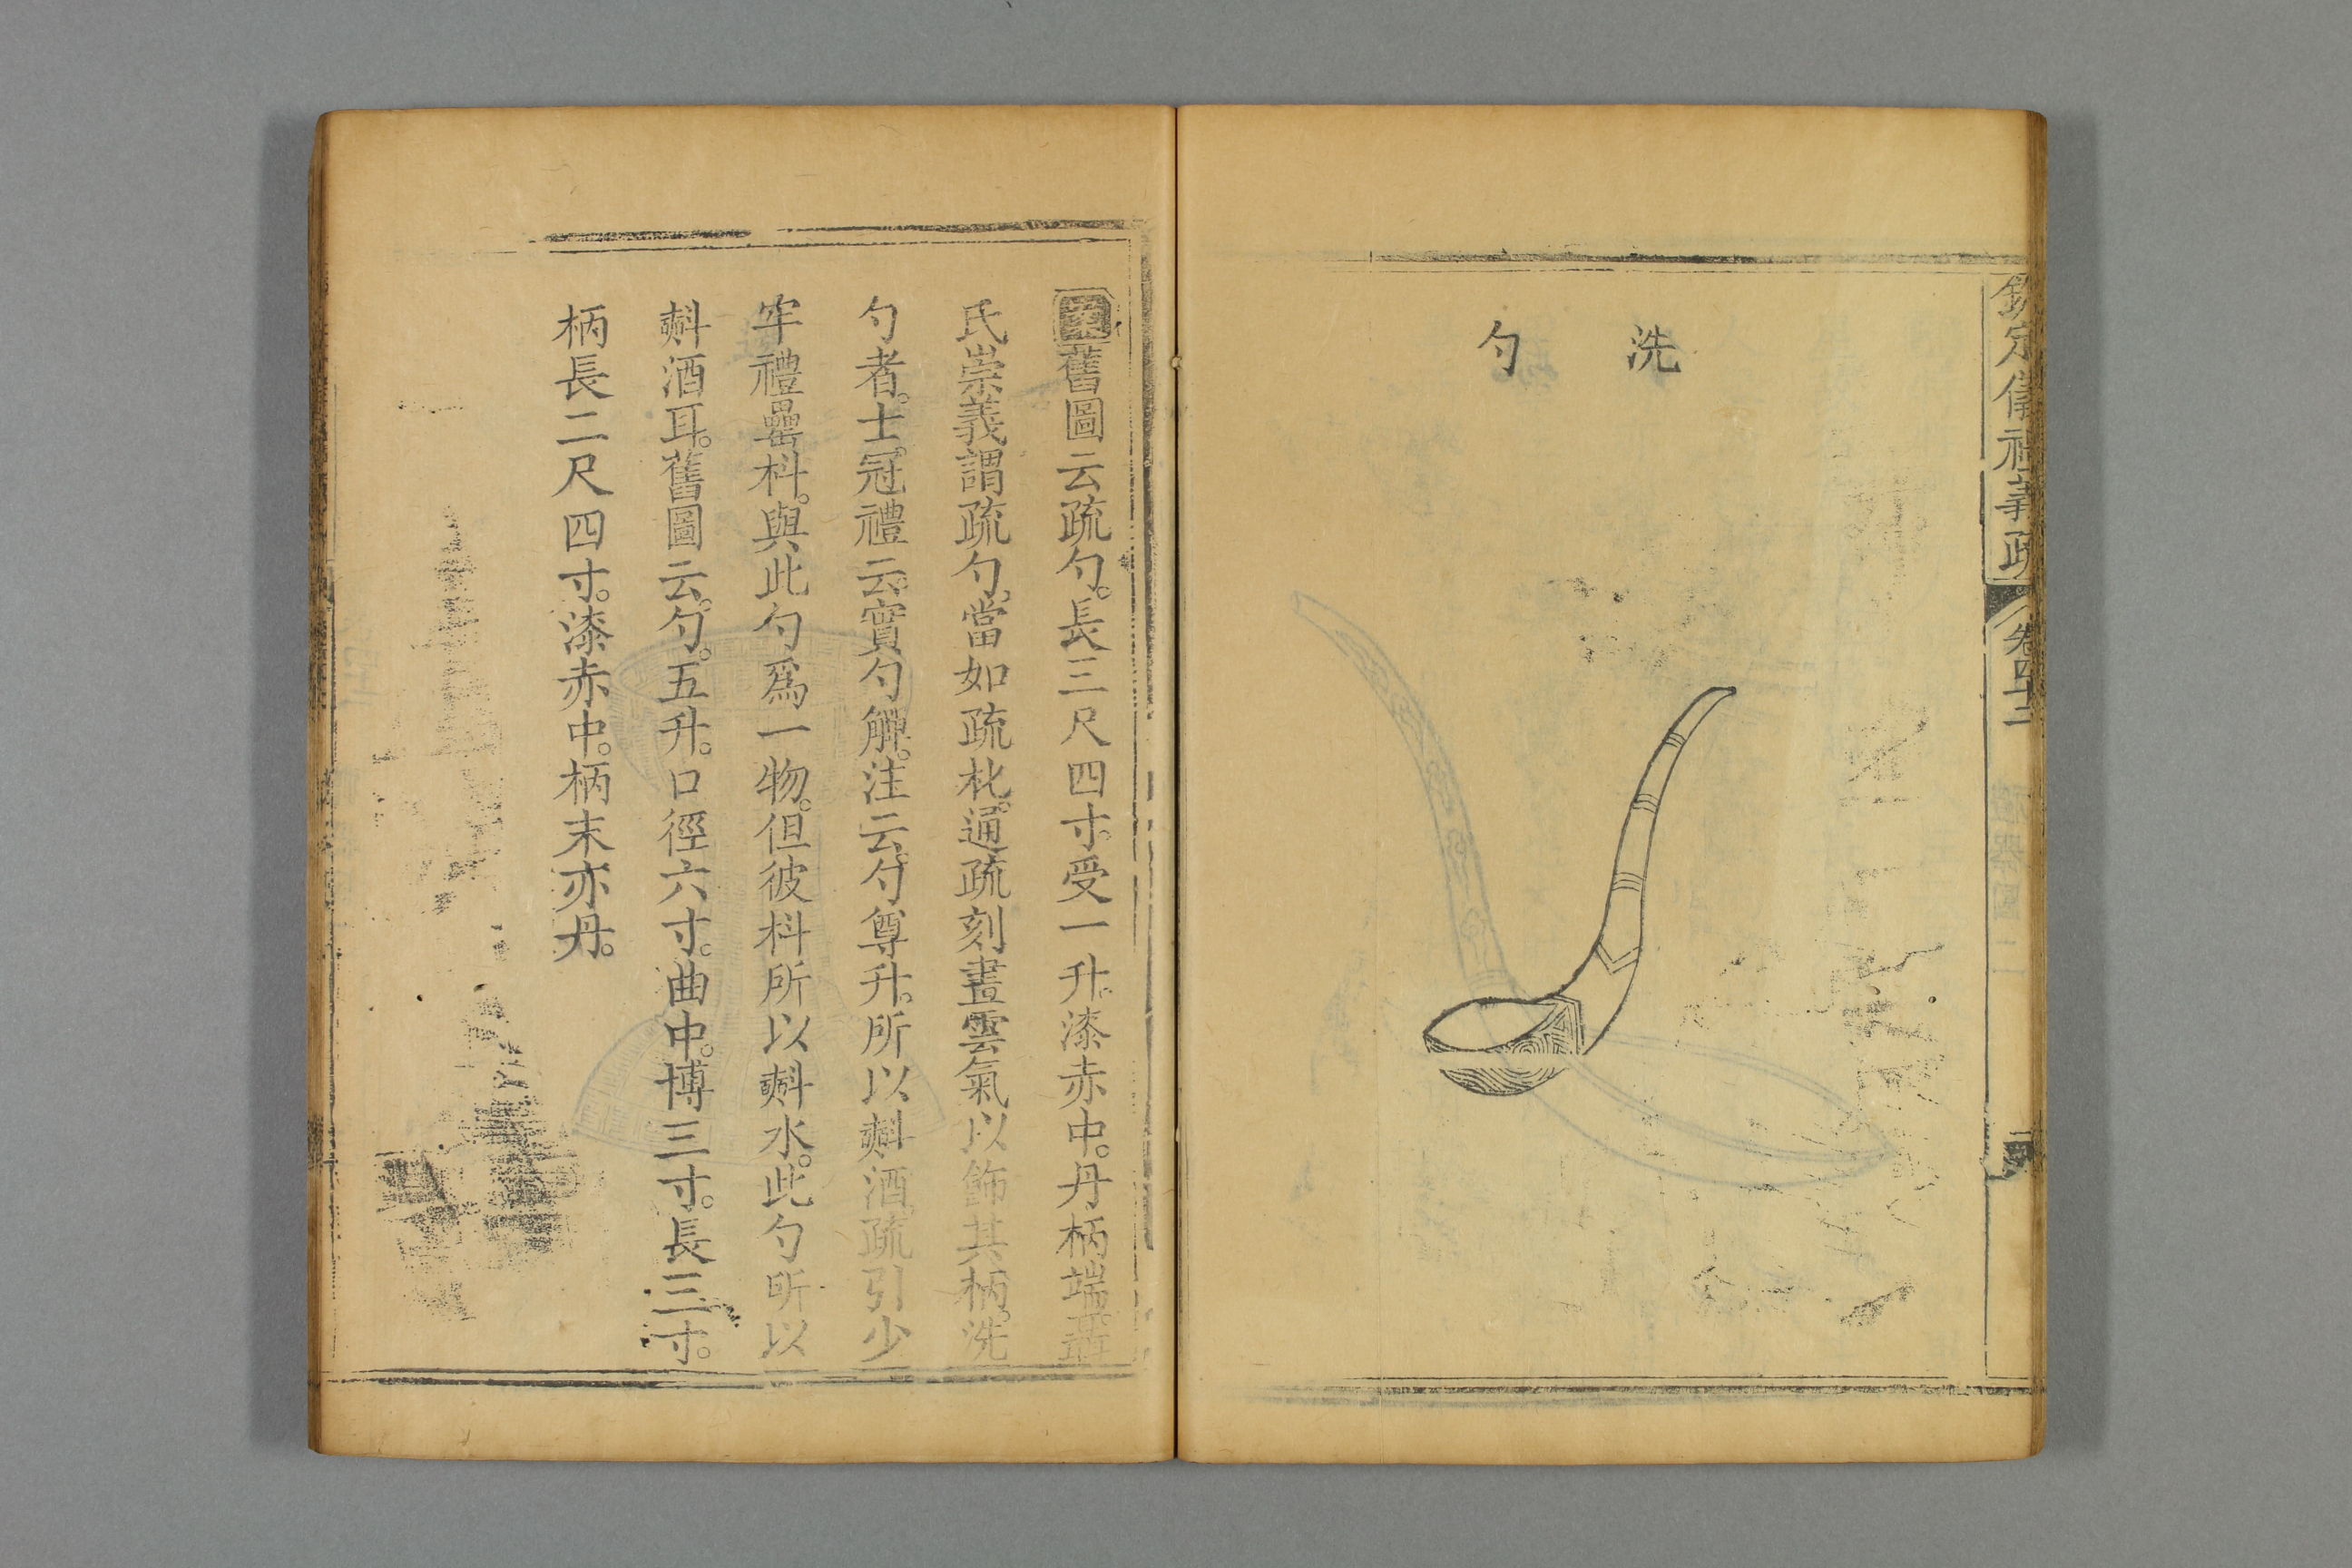 欽定儀禮義疏 卷四十二 禮器圖二
洗勺
案舊圖云疏勺。長三尺四寸。受一升。漆赤中。丹柄端。聶
氏崇義謂疏勺。當如疏枇。通疏刻畫雲氣以飾其柄。洗
勺者。士冠禮云。實勺觶。注云。勺尊升。所以㪺酒。疏引少
牢禮罍枓。與此勺為一物。但彼枓所以㪺水。此勺所以
㪺酒耳。舊圖云。勺。五升。口徑六寸。曲中。博三寸。長三寸。
柄長二尺四寸。漆赤中。柄末亦丹。